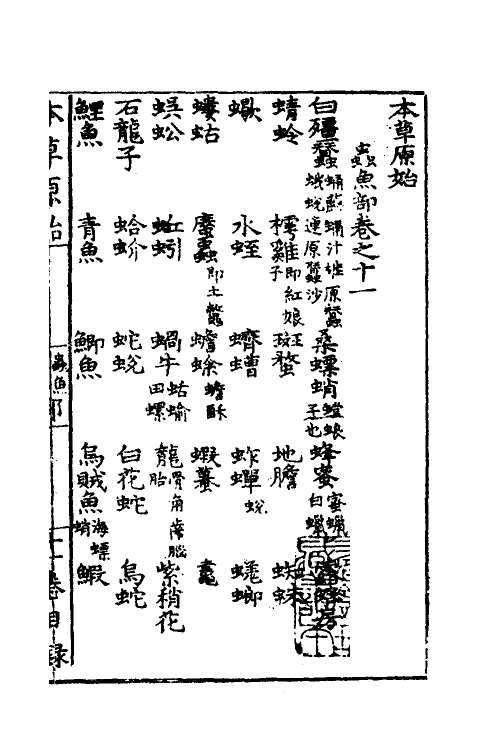 本草原始
蟲魚部卷之十一
白殭蠶 蛹 蠒 蛹汁 坯 原蠶 蛾 蛻 連 原蠶沙 桑螵蛸 螳螂子也 蜂蜜 蜜蠟 白蠟
蜻蛉 樗雞 即紅娘子 斑蝥 地膽 蜘蛛
蠍 水蛭 蠐螬 蚱蟬 蛻 蟋蟀
螻蛄 䗪蟲 即土鱉 蟾蜍 蟾酥 蝦蟇 鼃
蜈蚣 蚯蚓 蝸牛 蛞蝓 田螺 龍 骨 角 齒 腦 胎 紫稍花
石龍子 蛤蚧 蛇蛻 白花蛇 烏蛇
鯉魚 青魚 鯽魚 烏賊魚 海螵蛸 鰕
本草原始 蟲魚部 十一卷目錄